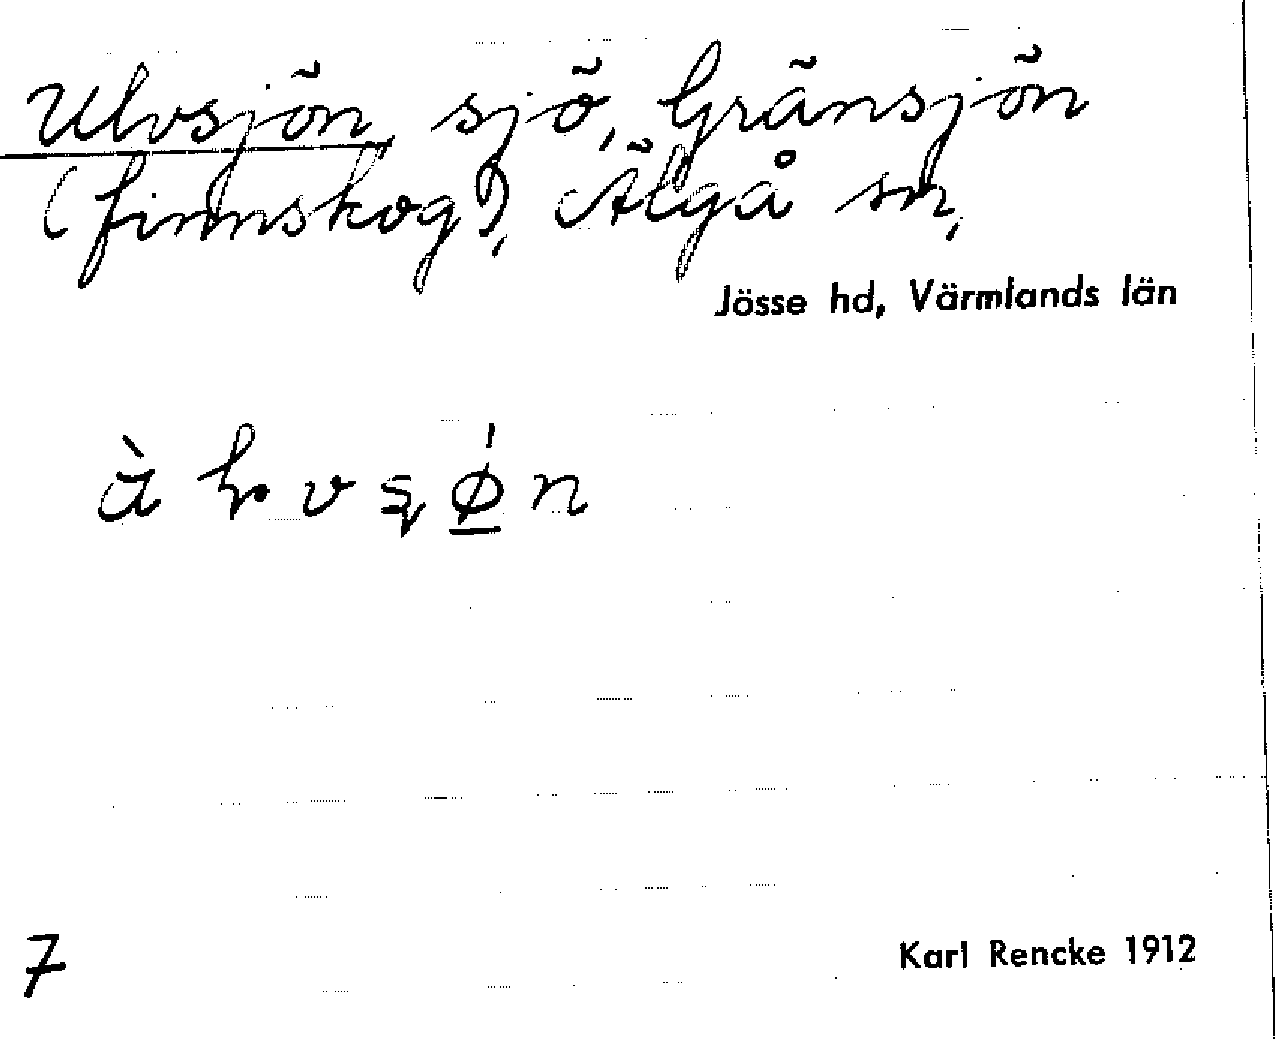 Ulvsjön, sjö, Gränsjön
(finnskog), Älgå sn,
Jösse hd, Värmlands län
7
Karl Rencke 1912